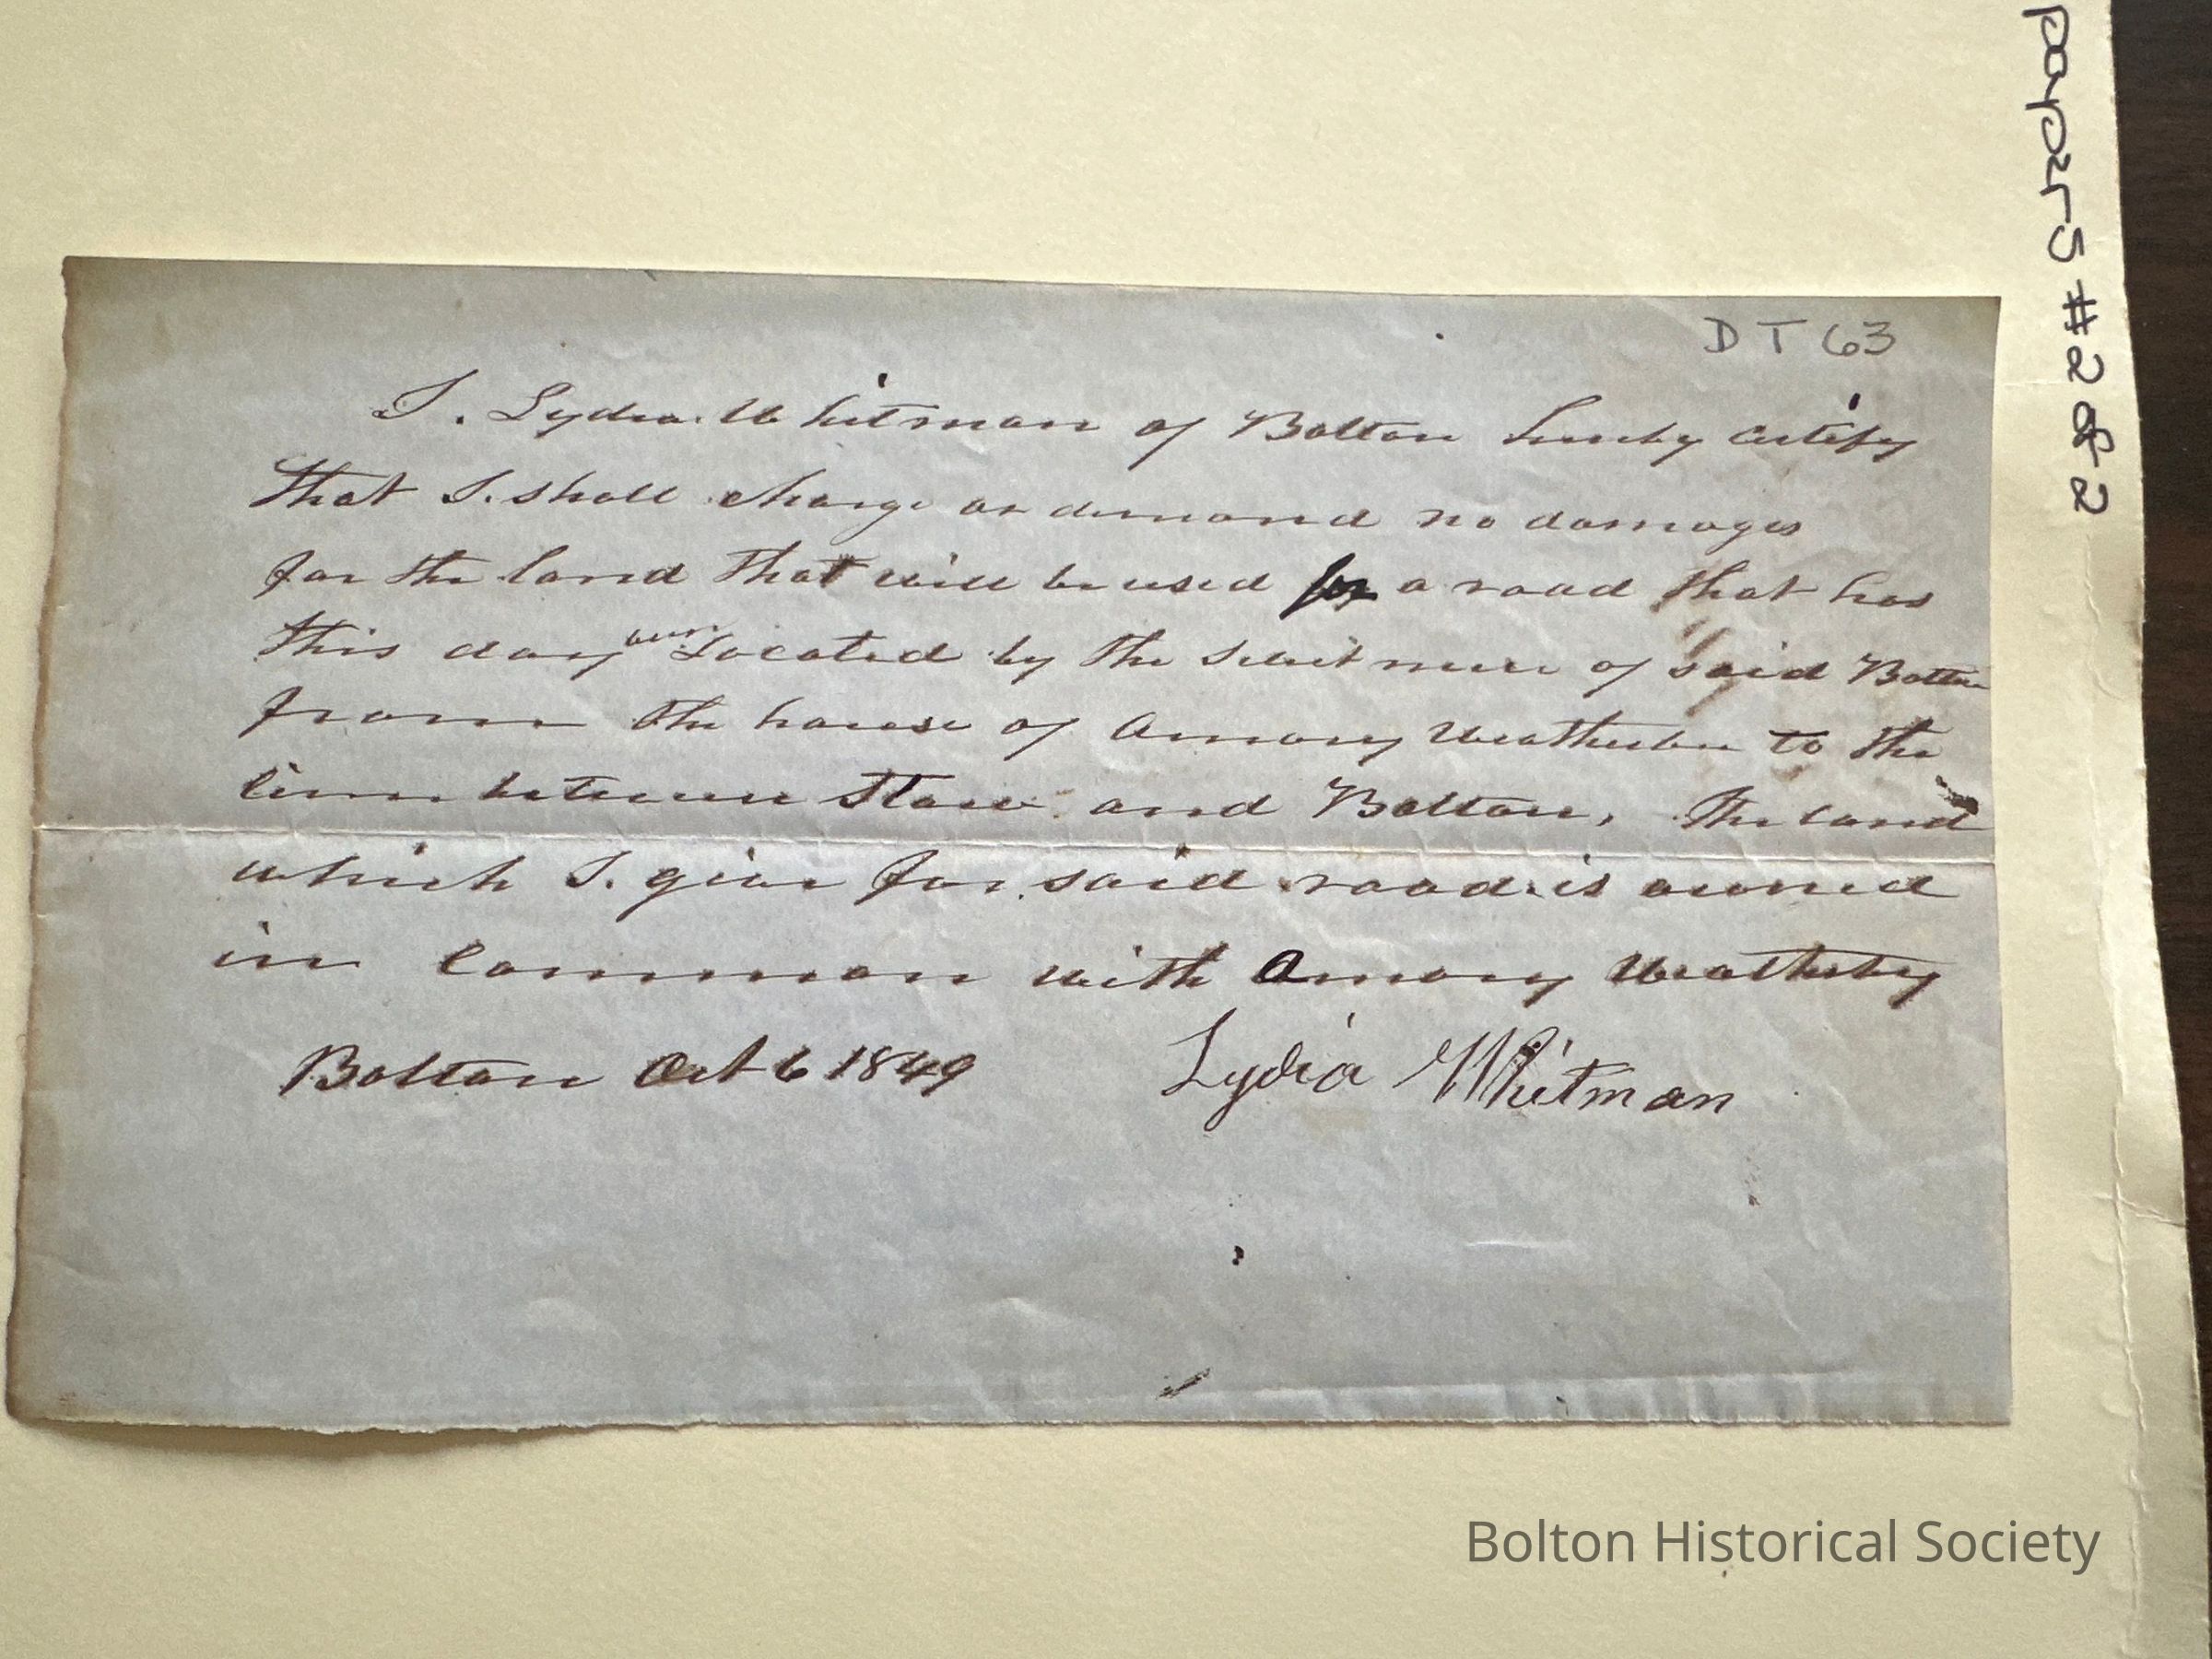 papers #2 & 2
DT 63
I. Lydia Whitman of Bolton hereby certify
that I. shall charge or demand no damages
for the land that will be used for a road that has
this day been Located by the Selectmen of said Bolton
from the house of Amory Weatherbee to the
line between Stow and Bolton, The land
which I. give for said road is owned
in common with Amory Weatherby
Bolton Oct 6 1849 Lydia Whitman
Bolton Historical Society